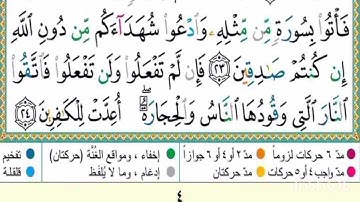 فَأْتُوا۟ بِسُورَةٍۢ مِّن مِّثْلِهِۦ وَٱدْعُوا۟ شُهَدَآءَكُم مِّن دُونِ ٱللَّهِ
إِن كُنتُمْ صَـٰدِقِينَ ٢٣ فَإِن لَّمْ تَفْعَلُوا۟ وَلَن تَفْعَلُوا۟ فَٱتَّقُوا۟
ٱلنَّارَ ٱلَّتِى وَقُودُهَا ٱلنَّاسُ وَٱلْحِجَارَةُ ۖ أُعِدَّتْ لِلْكَـٰفِرِينَ ٢٤
مدّ ٦ حركات لزوماً مدّ ٢ أو ٤ أو ٦ جوازاً إخفاء، ومواقع الغُنَّة (حركتان) تفخيم
مدّ واجب ٤ أو ٥ حركات مدّ حركتان إدغام، وما لا يُلفَظ قلقلة
٤